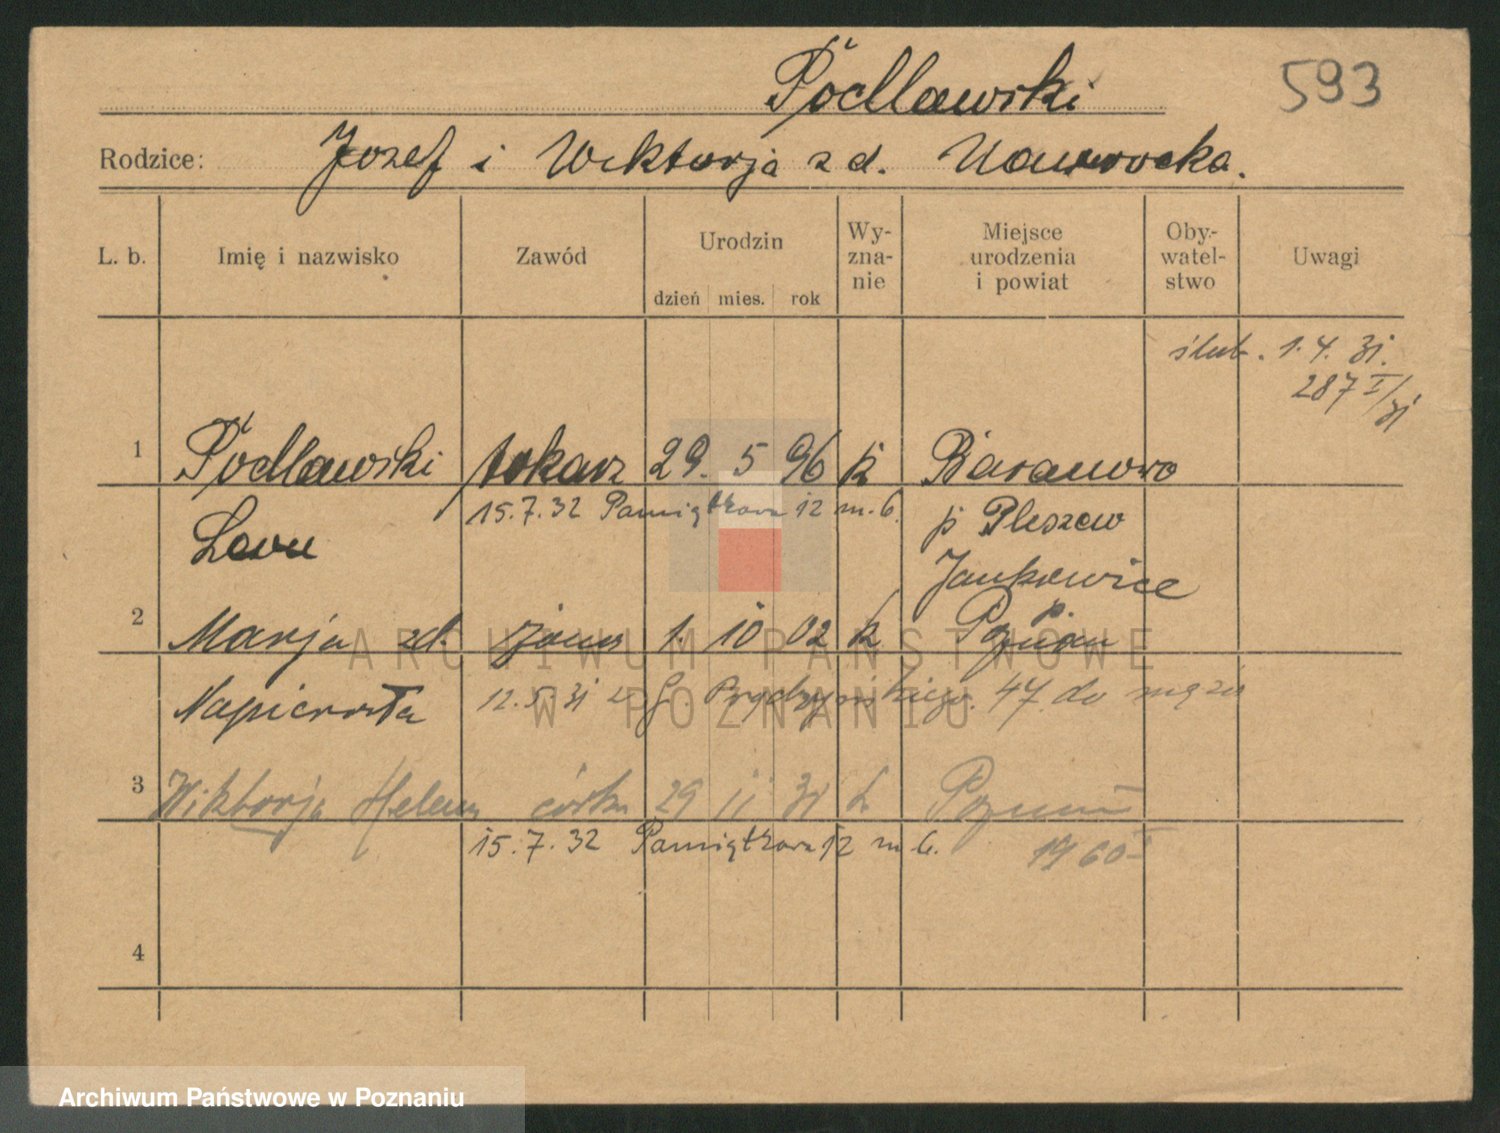 Pődlawski
593
Rodzice: Józef i Wiktorja z d. Nawrocka.
L. b. Imię i nazwisko Zawód Urodzin dzień mies. rok Wy-zna-nie Miejsce urodzenia i powiat Oby-watel-stwo Uwagi
ślub. 1. 4. 31.
287 I/31
1 Pődlawski tokarz 29. 5 96 k Baranowo
15.7.32 Pamiątkowa 12 m. 6.
p Pleszew
Leon
Jankowice
2 Marja zd. żona 1. 10 02 k p. Poznań
Napierała 12.5.31 47 do męża
3 Wiktorja Helena córka 29 11 31 k Poznań
15.7.32 Pamiątkowa 12 m 6.
1960
4
ARCHIWUM PAŃSTWOWE
W POZNANIU
Archiwum Państwowe w Poznaniu